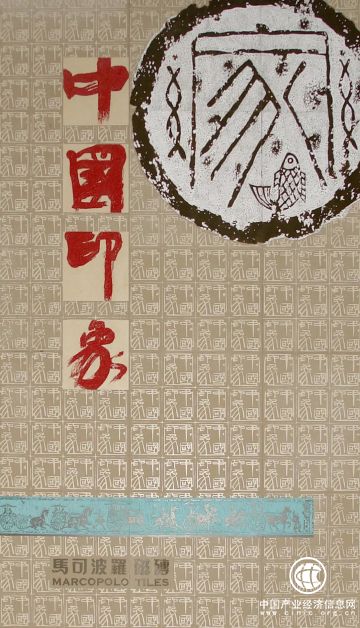 中國印象
馬可波羅
MARCOPOLO TILES
中国产业经济信息网
www.cinic.org.cn